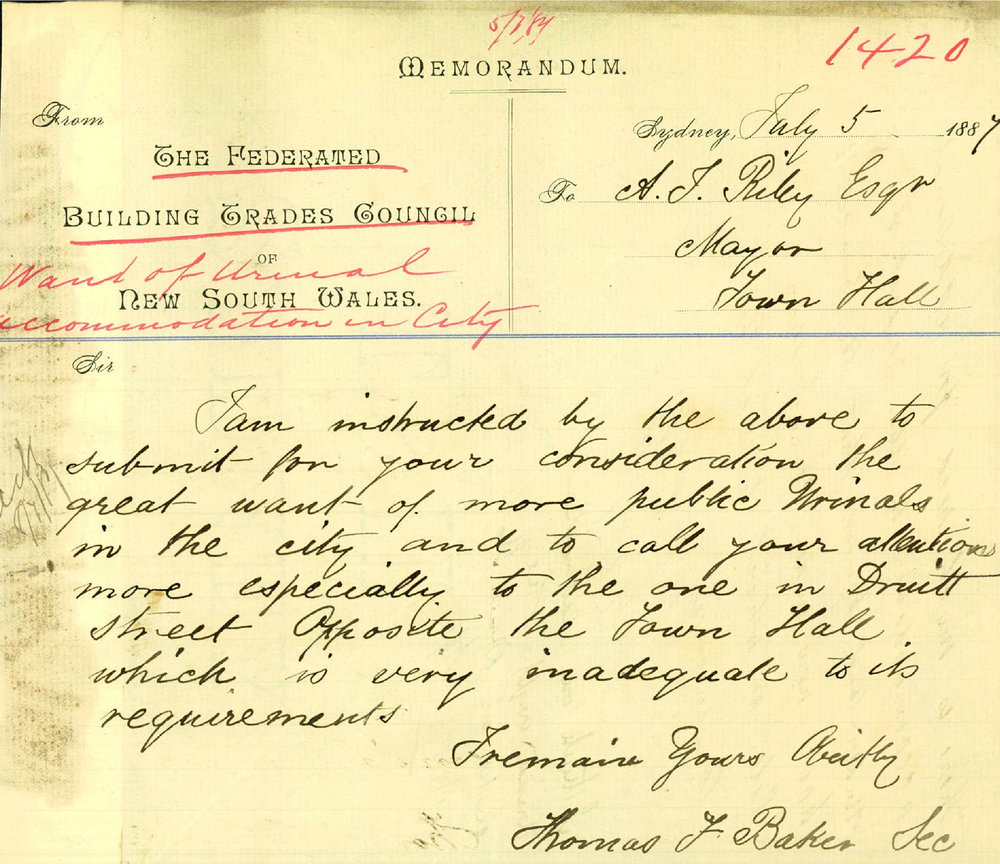 5/7/87
1420
MEMORANDUM.
From
THE FEDERATED
BUILDING TRADES COUNCIL
OF
Want of Urinal
NEW SOUTH WALES.
accommodation in City
Sydney, July 5 1887
To A. J. Riley Esqr
Mayor
Town Hall
Sir
I am instructed by the above to
submit for your consideration the
great want of more public Urinals
in the city and to call your attention
more especially to the one in Druitt
street Opposite the Town Hall
which is very inadequate to its
requirements
I remain Yours Obeitly
Thomas F Baker Sec